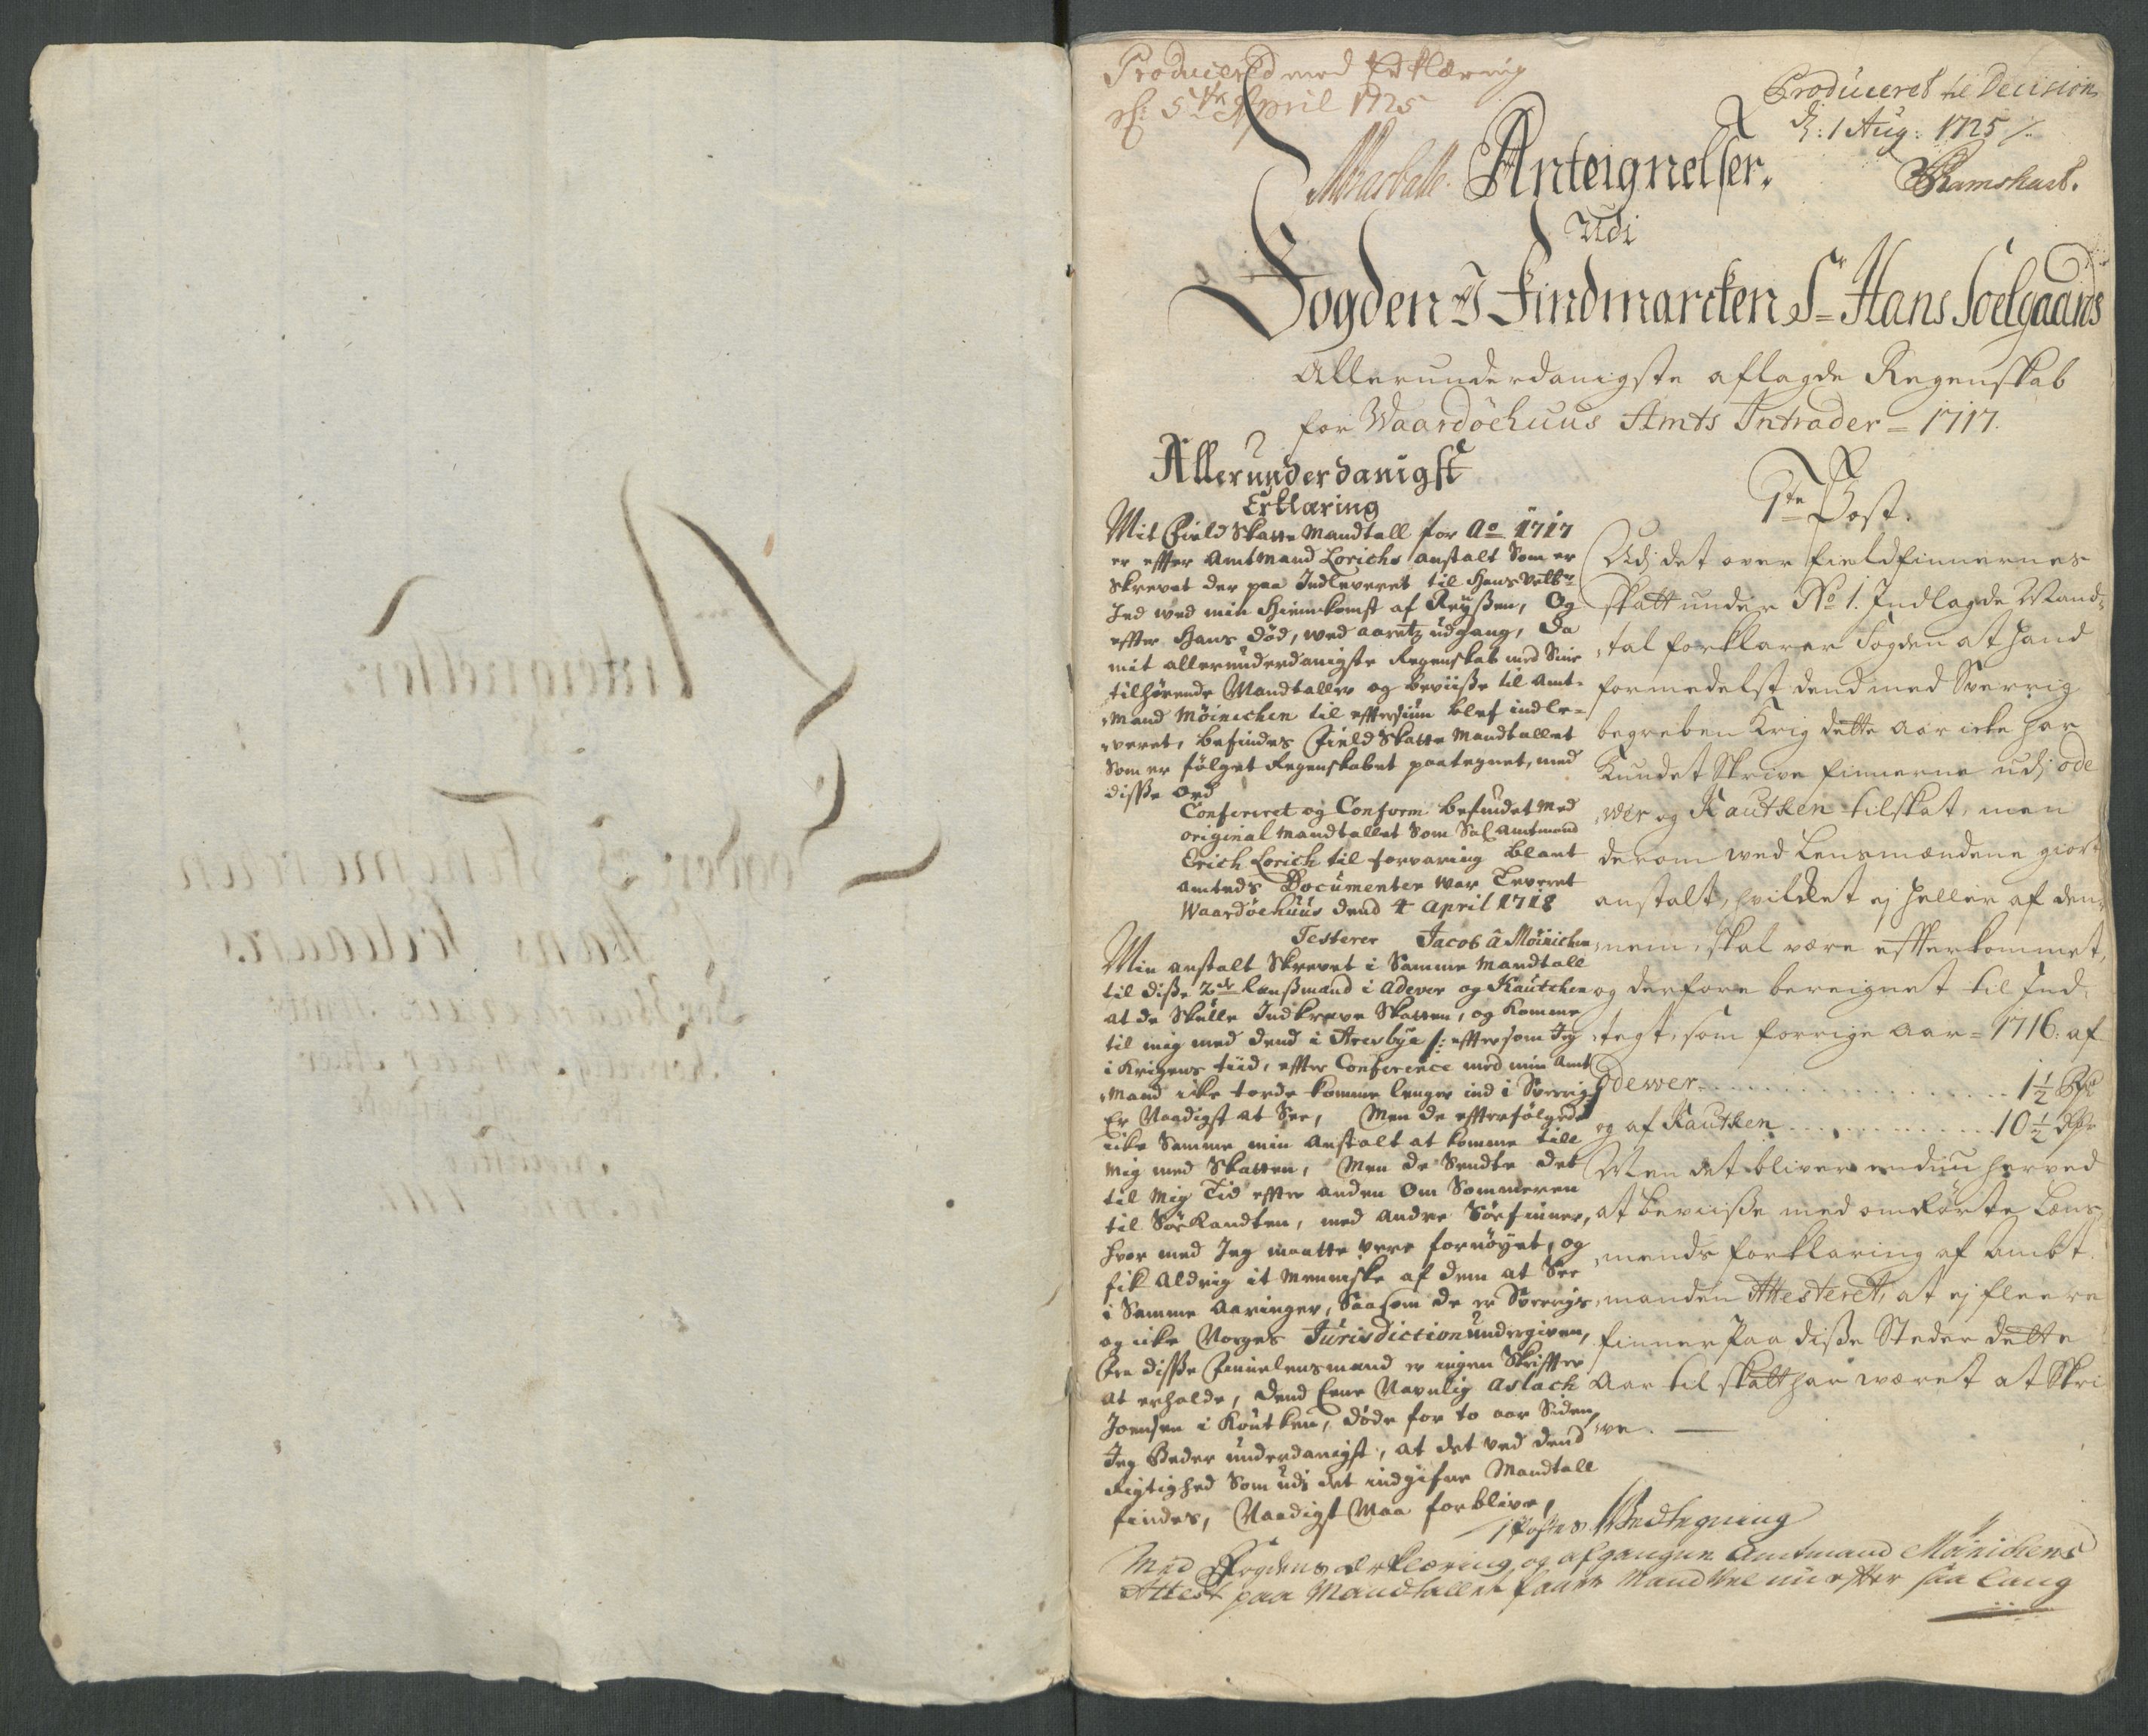 Produceret med Erklæring
d: 5te April 1725
Produceret til Decision
d: 1 Aug: 1725 /.
Ramshart.
Anteignelser.
Udi
Fogden I Findmarcken Sr Hans Soelgaards
Allerunderdanigste aflagde Regenskab
for Waardöehuus Amts Intrader = 1717.
Allerunderdanigst
Erklæring
Mit Field Skatte Mandtall for Ao 1717
er effter Amtmand Lorichs anstalt Som er
Skrevet der paa Indleveret til Hans Velbr
Ied wed min Hiemkomst af Reyßen, Og
effter Hans död, wed aaretz udgang, Da
mit allerunderdanigste Regenskab med Sine
tilhörende Mandtaller og beviiße til Amt-
mand Möinichen til effter siun blef indle-
weret, befindes Field Skatte Mandtallet
Som er fölget Regenskabet paategnet, med
disße Ord
Confereret og Conform befindet Med
original Mandtallet Som Sal Amtmand
Erich Lorich til forvaring blant
Amteds Documenter war Leveret
Waardöehuus dend 4 April 1718
Testerer Jacob â Möinichen
Min anstalt Skrevet i Samme Mandtall
til diße 2de Lensmand i Adever og Kautchen
at de Skulle Indkreve Skatten, og komme
til mig med dend i Aresbye /: effter som Jeg
i Krigens tiid, effter Conference med min Amt
Mand icke torde komme lenger ind i Sverrig
Er Naadigst at See, Men de effterfölgede
icke Samme min Anstalt at komme till
Mig med Skatten, Men de Sendte det
til Mig Tid effter anden Om Sommeren
til Söe Kandten, med Andre Söefinner,
hvor med Jeg maatte vere fornöyet, og
fik Aldrig it Menniske af dem at See
i Samme Aaringer, Saasom de er Sverrigs
og icke Norges Jurisdiction undergiven,
Fra disße Finnelensmand er ingen Skriffter
at erholde, Dend Eene Navnlig Aslach
Joensen i Koutken, döde for to aar Siden,
Jeg Beder underdanigst, at det ved dend
Rigtighed Som udi det indgifne Mandtall
findes, Naadigst Maa forblive,
1te Post.
Udj det over Fieldfinnernes
skatt under No 1. Indlagde Mand-
tal forklarer Fogden at hand
formedelst dend med Sverrig
begreben Krig dette Aar icke har
Kundet Skrive Finnerne udj Ode
wer og Kautken til skat, men
derom wed Lensmændene giort
anstalt, hvilcket ej heller af den-
nem, skal være effterkommet,
og derfore bereignet til Ind-
tegt, som forrige Aar = 1716. af
Odewer . . . . . . . . 1½ Rd
og af Kautken . . . . . . 10½ Rd
Men det bliver endnu herved
at beviiße med omrörte Lens-
mænds forklaring af Ambt-
manden Attesteret, at ej fleere
Finner Paa diße Steder dette
Aar til skatt har wæret at Skri
we. —
1 Postes Wedtegning
Med Fogdens Erklæring og afgangne Amtmand Möinichens
Attest paa Mandtallet faaer Mand vel nu effter saa lang